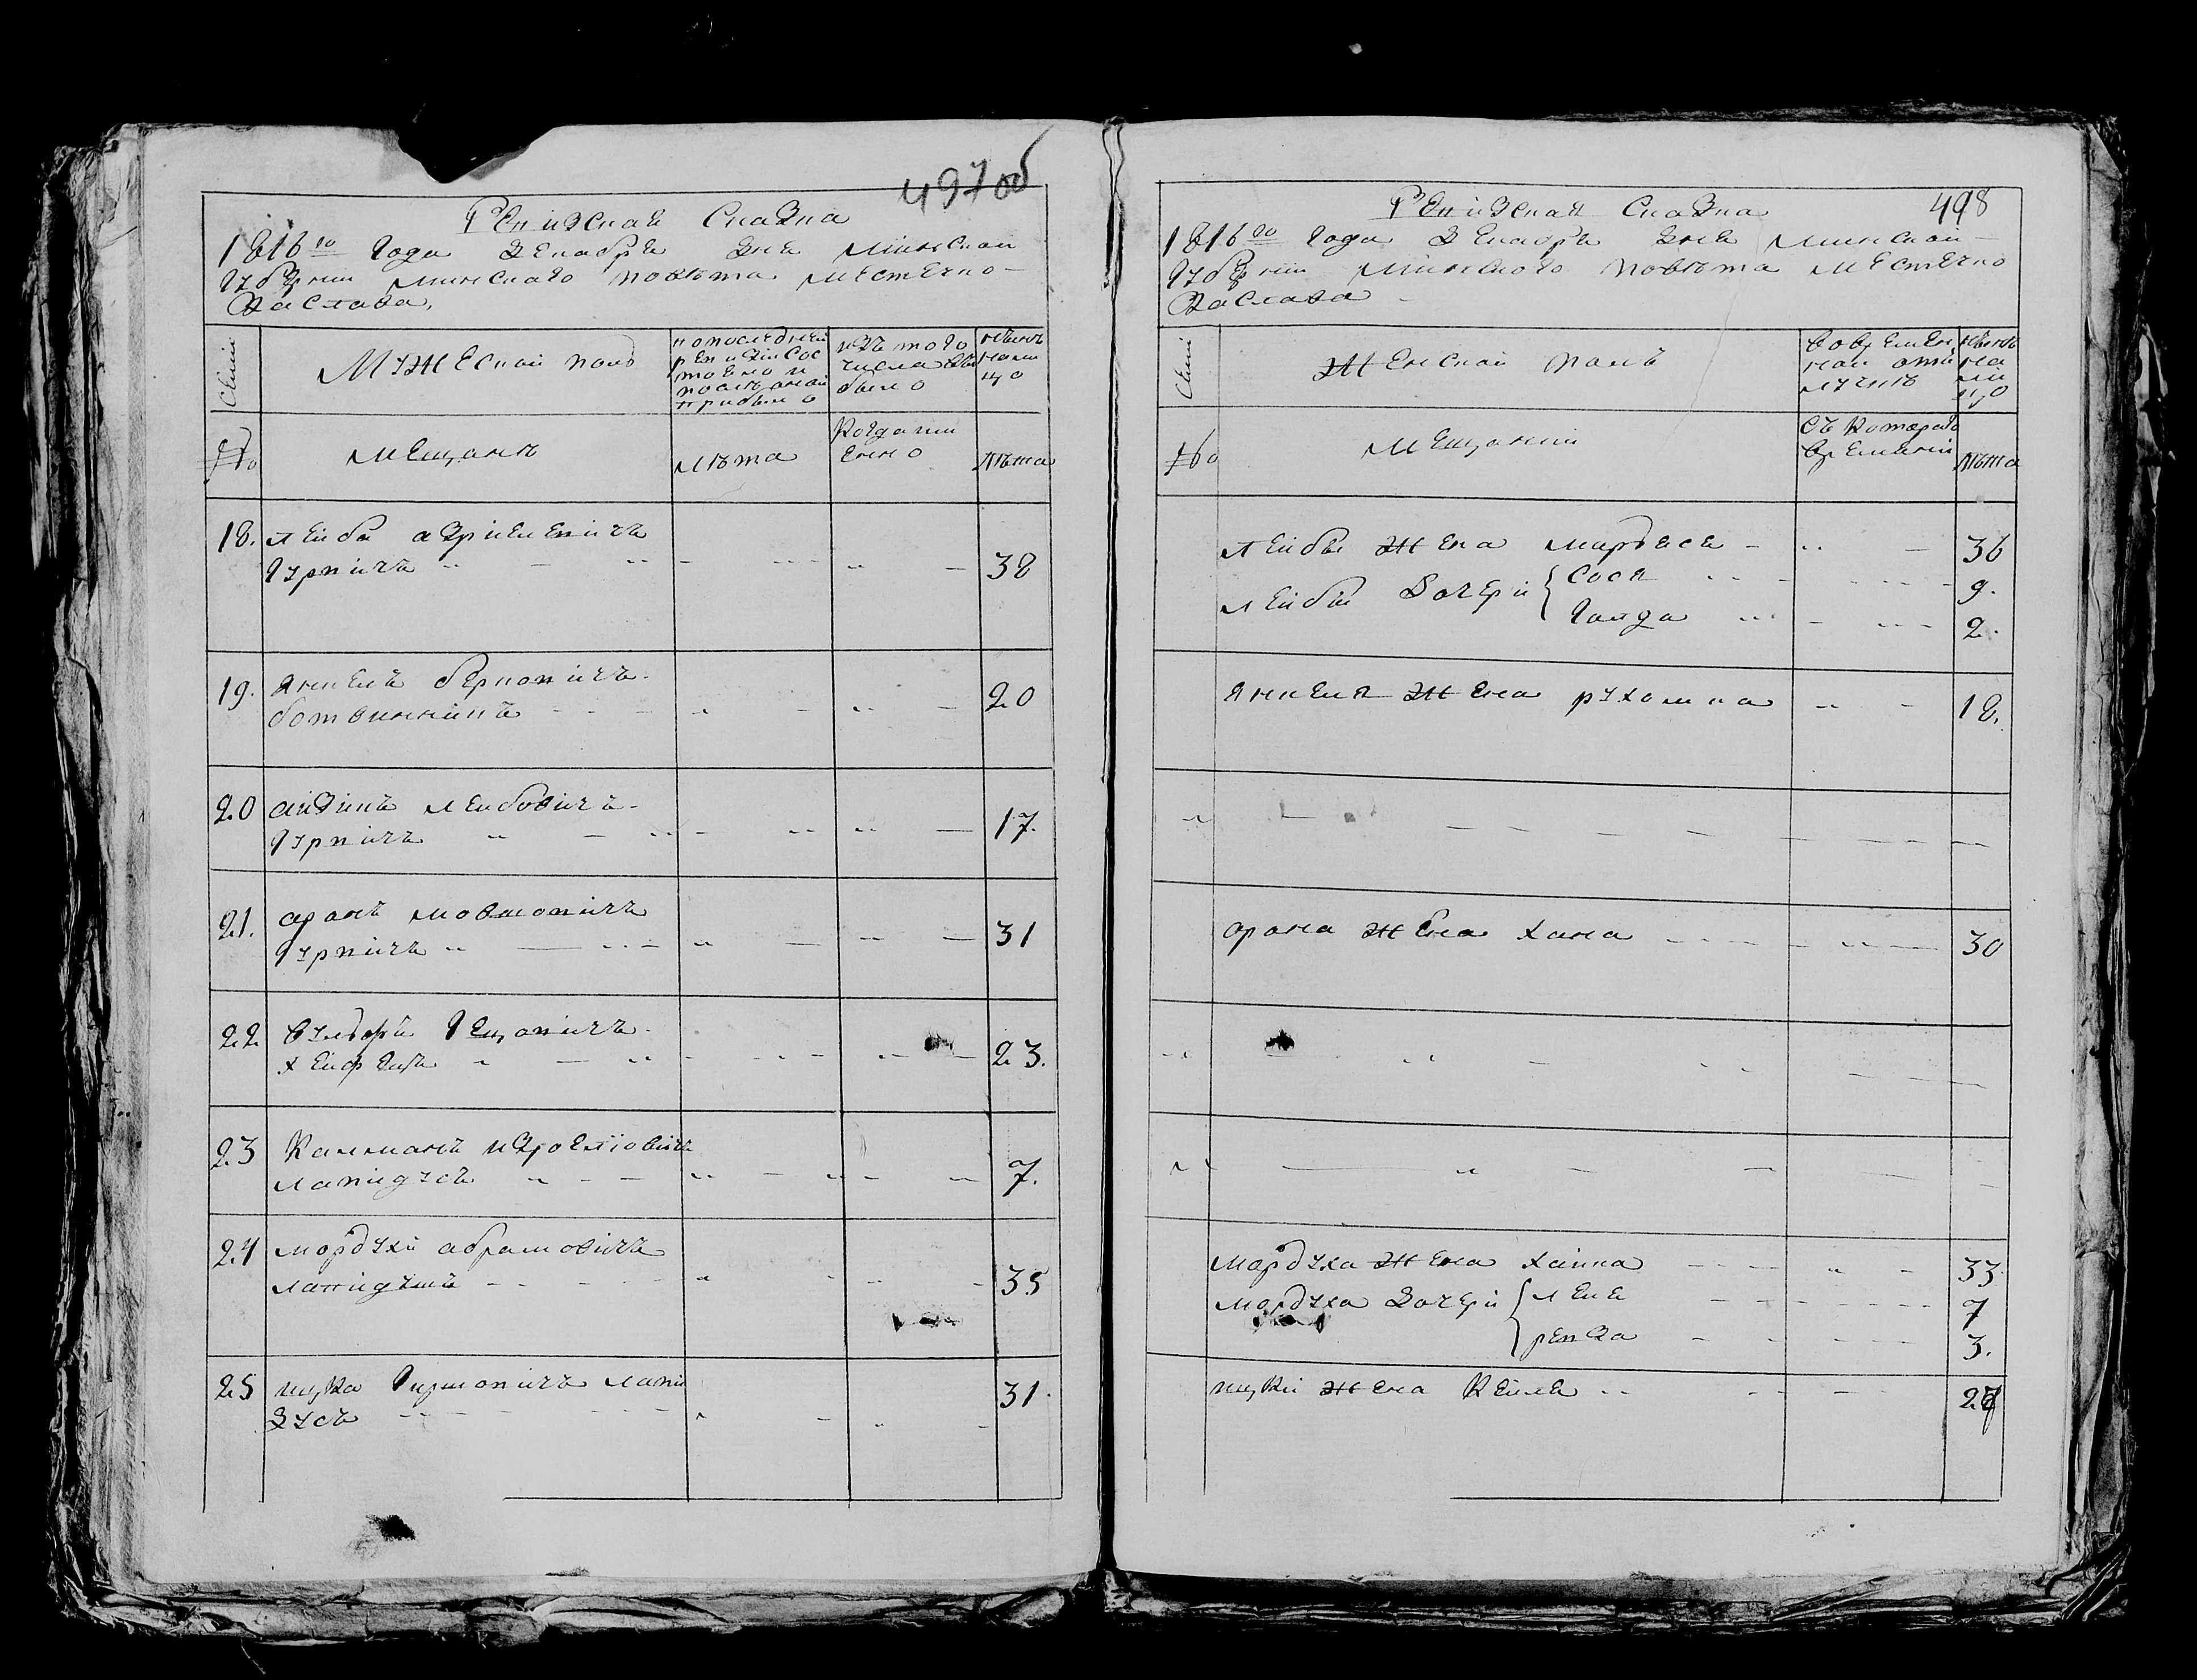 497об
Ревизская Сказка
1816го Года Декабря дня Минской
Губернии Минскаго повѣта мѣстечко
Заслава,
Семьи
Мужеской полъ
попоследней ревизіи состояло и послѣ оной прибыло
изъ того числа выбыло
нынѣ налицо
№
мещанѣ
лѣта
Когда именно
лѣта
18. лейба
Гурвичъ 38
19. янкель берковичъ
ботвинникъ 20
20 айзикъ лейбовичъ
Гурвичъ 17.
21. аронъ мовшовичъ
Гурвичъ 31
22
хейфецъ 23.
23 Калманъ израеліовичъ
лапидусъ 7.
24 мордухъ абрамовичъ
лапидусъ 35
25 ицка Гиршовичъ лапи
дусъ 31.
498
Ревизская Сказка
1816го Года Декабря дня Минской
Губернии Минскаго повѣта мѣстечко
Заслава
Семьи
Женской полъ
вовременной отлучкѣ
нынѣ налицо
№
мещанки
съ котораго времени
лѣта
лейбы жена 36
лейбы дочери { сося 9.
голда 2.
янкеля жена рухомка 18.
арона жена хана 30
мордуха жена хаика 33
мордуха дочери { лея 7
ревза 3.
ицки жена Кейля